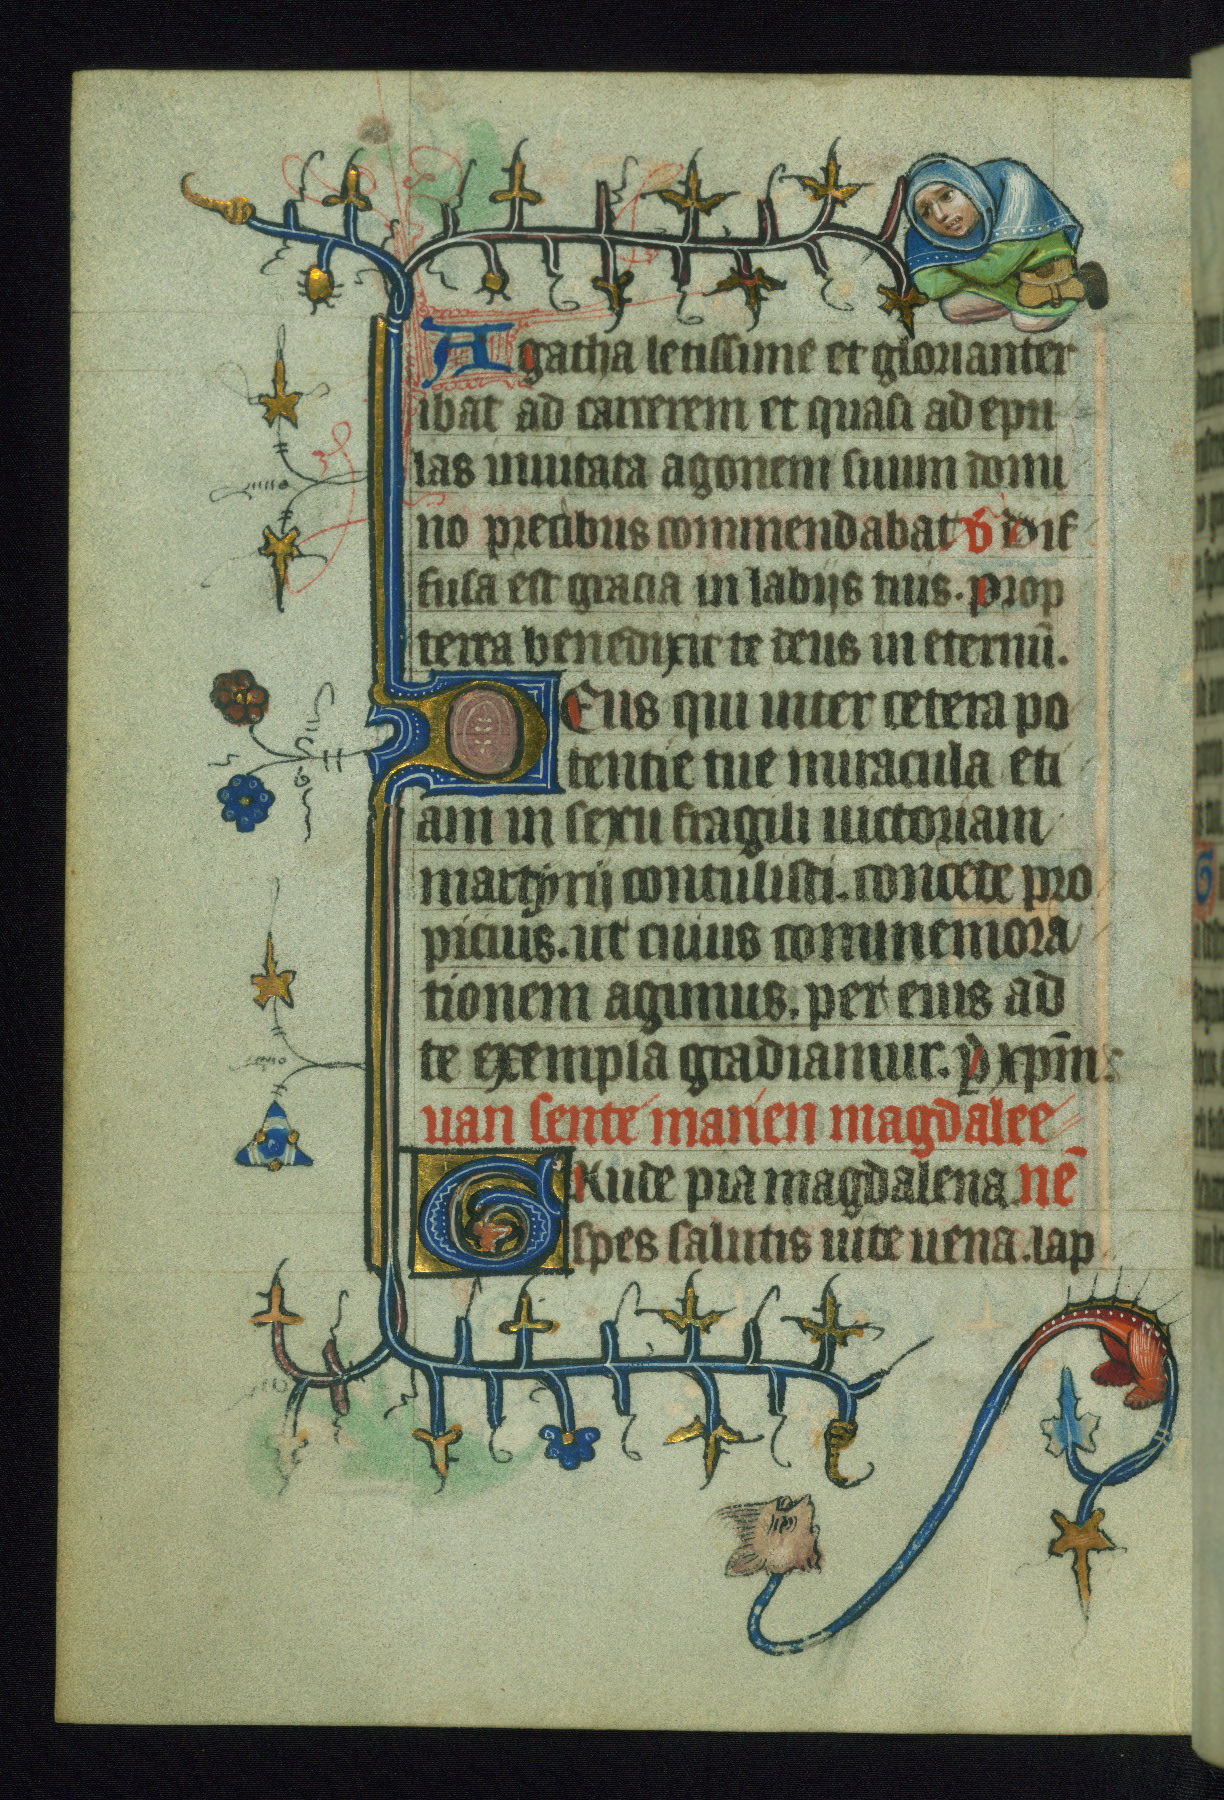 Agatha letissime et glorianter
ibat ad carcerem et quasi ad epu
las inuitata agonem suum domi
no precibus commendabat ℣ Dif
fusa est gracia in labijs tuis. prop
terea benedixit te deus in eternū.
Deus qui inter cetera po
tentie tue miracula eti
am in sexu fragili uictoriam
martyrij contulisti. concede pro
picius. ut cuius commemora
tionem agimus. per eius ad
te exempla gradiamur. ꝑ xpm̄
uan sente marien magdalee
Gaude pia magdalena nē
spes salutis uite uena. lap